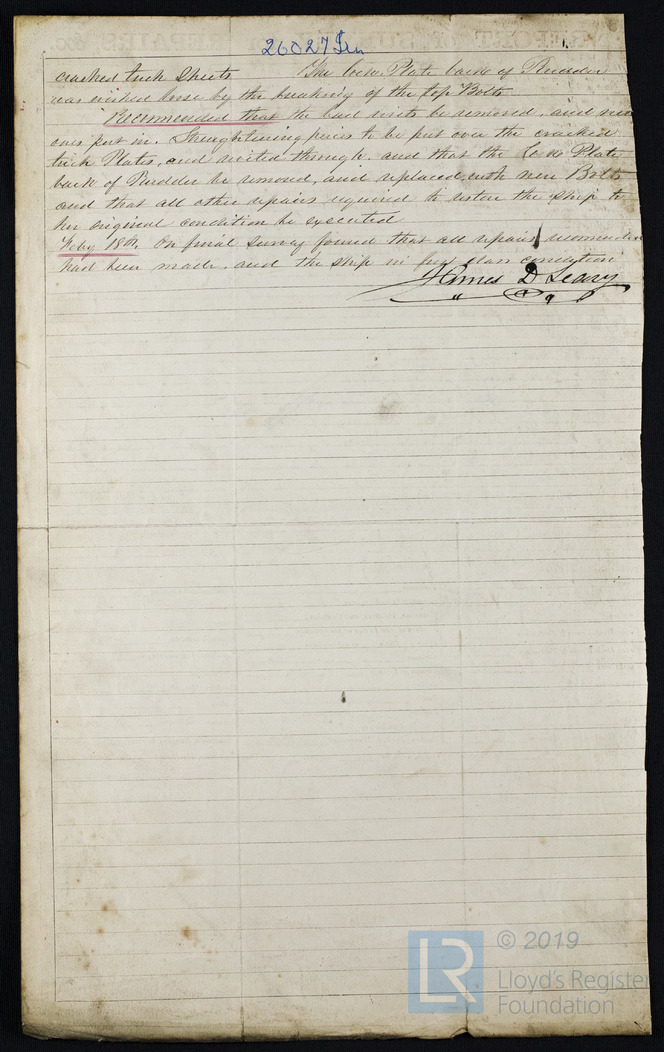 26027 Irn
cracked tuck Sheets The Cover Plate back of Rudder
was worked loose by the breaking of the top Bolts
Recommended that the bad rivets be removed, and new
ones put in. Straightening pieces to be put over the cracked
tuck Plates, and riveted through. and that the Cover Plate
back of Rudder be removed, and replaced, with new Bolts
and that all other repairs required to restore the ship to
her original condition be executed
Feby 18th. On final Survey found that all repairs recommended
had been made. and the ship in first class condition
James D Leary
© 2019
LR
Lloyd's Register
Foundation